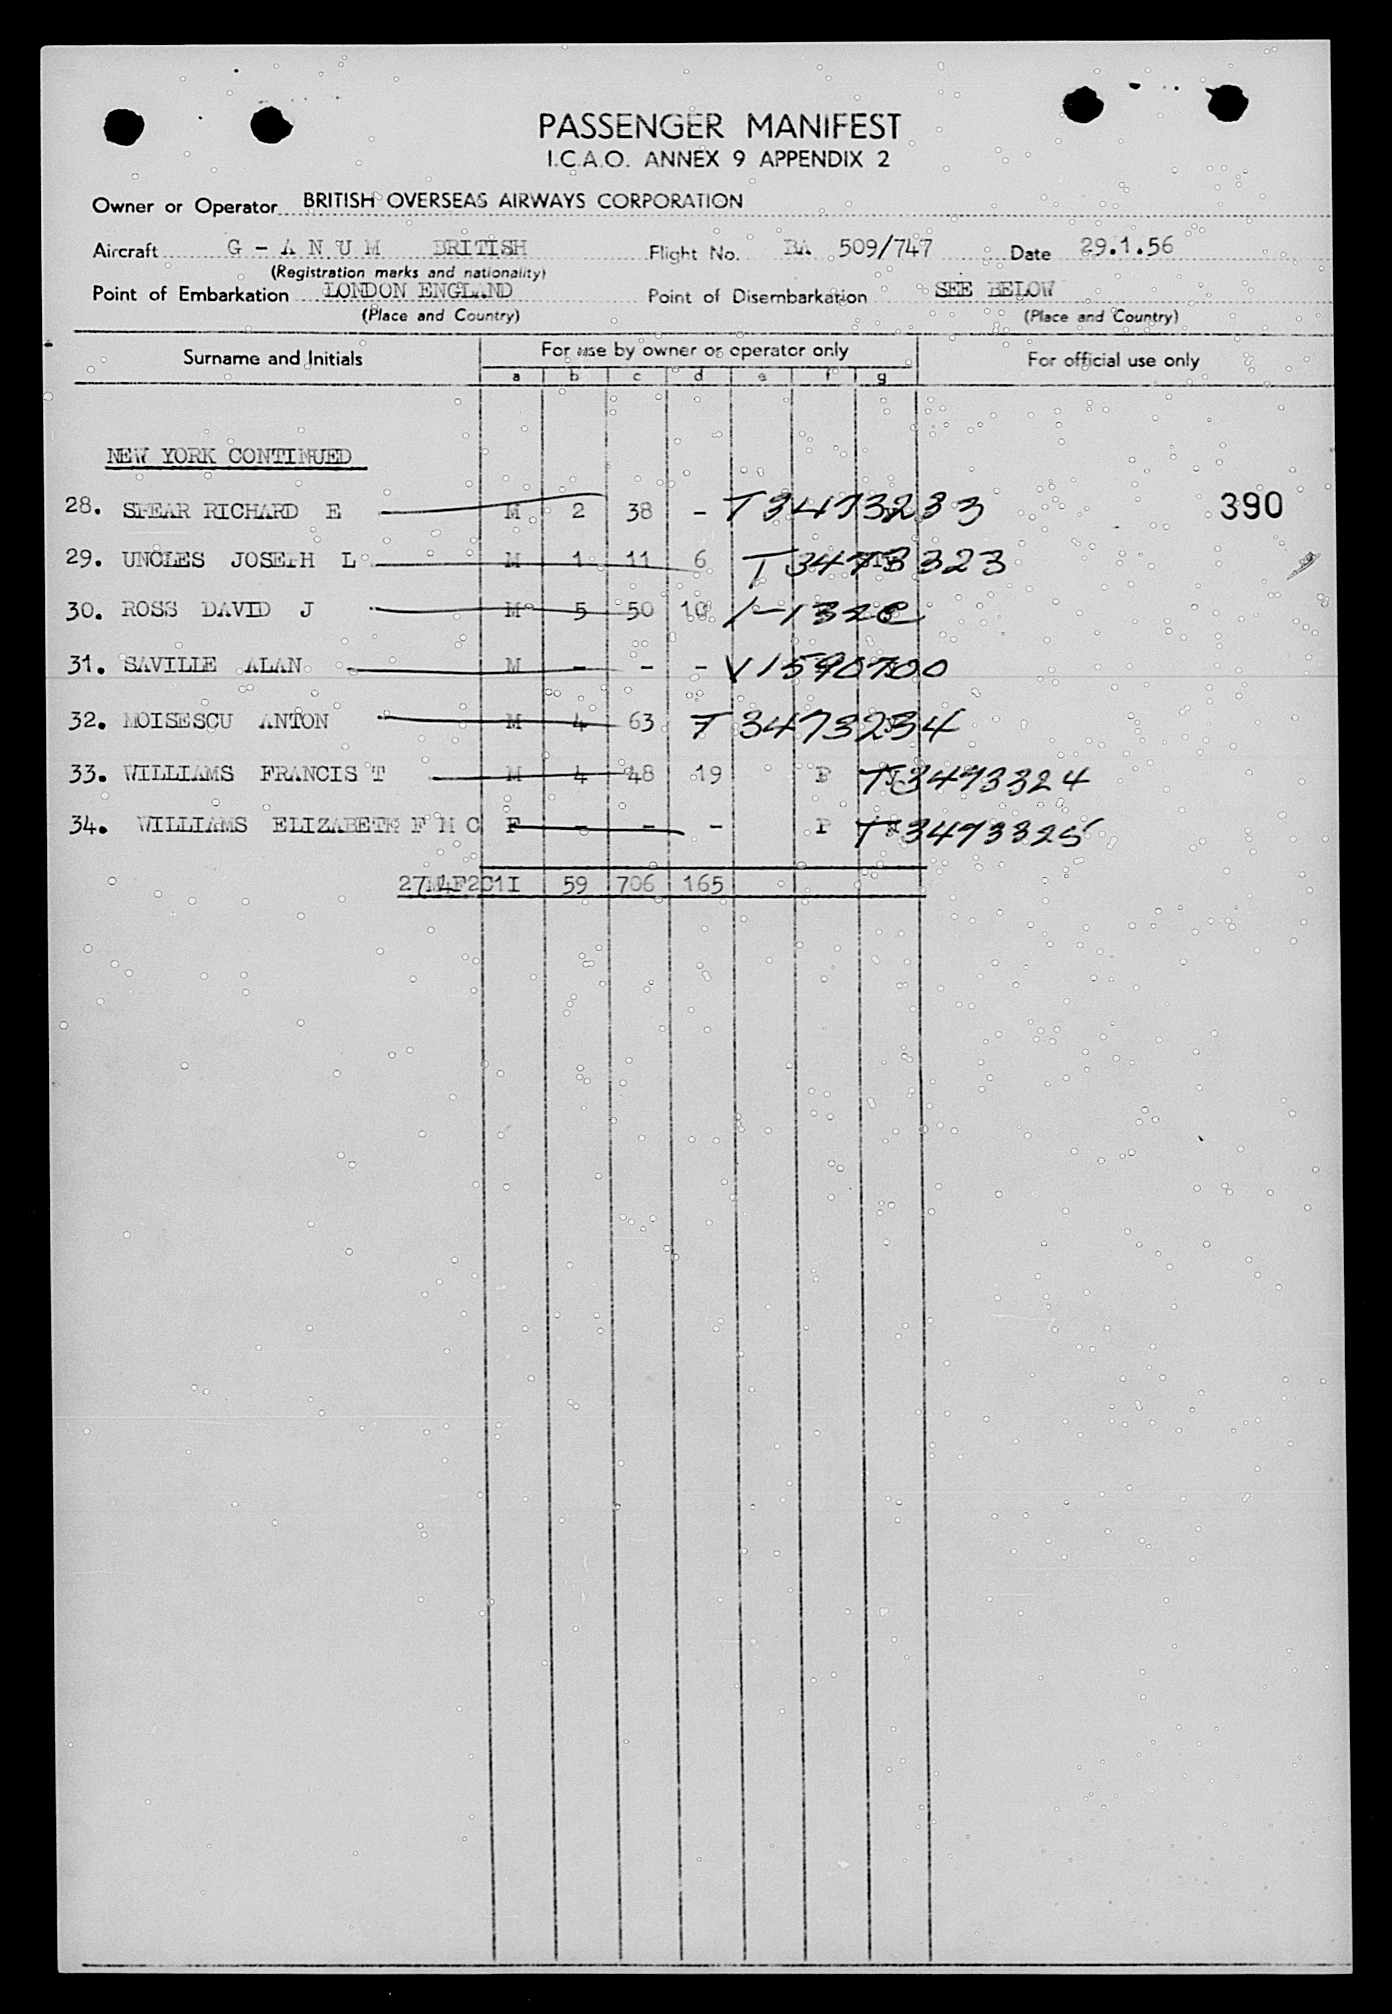 PASSENGER MANIFEST
I.C.A.O. ANNEX 9 APPENDIX 2
Owner or Operator BRITISH OVERSEAS AIRWAYS CORPORATION
Aircraft G - A N U M BRITISH Flight No. BA 509/747 Date 29.1.56
(Registration marks and nationality)
Point of Embarkation LONDON ENGLAND Point of Disembarkation SEE BELOW
(Place and Country) (Place and Country)
Surname and Initials For use by owner or operator only For official use only
a b c d e f g
NEW YORK CONTINUED
28. SPEAR RICHARD E M 2 38 - T3473233 390
29. UNCLES JOSEPH L M 1 11 6 T3473323
30. ROSS DAVID J M 5 50 10
31. SAVILLE ALAN M - - - V1590700
32. MOISESCU ANTON M 4 63 T3473234
33. WILLIAMS FRANCIS T M 4 48 19 P T3473324
34. WILLIAMS ELIZABETH F M C F - - - P T3473325
27M4F2C1I 59 706 165